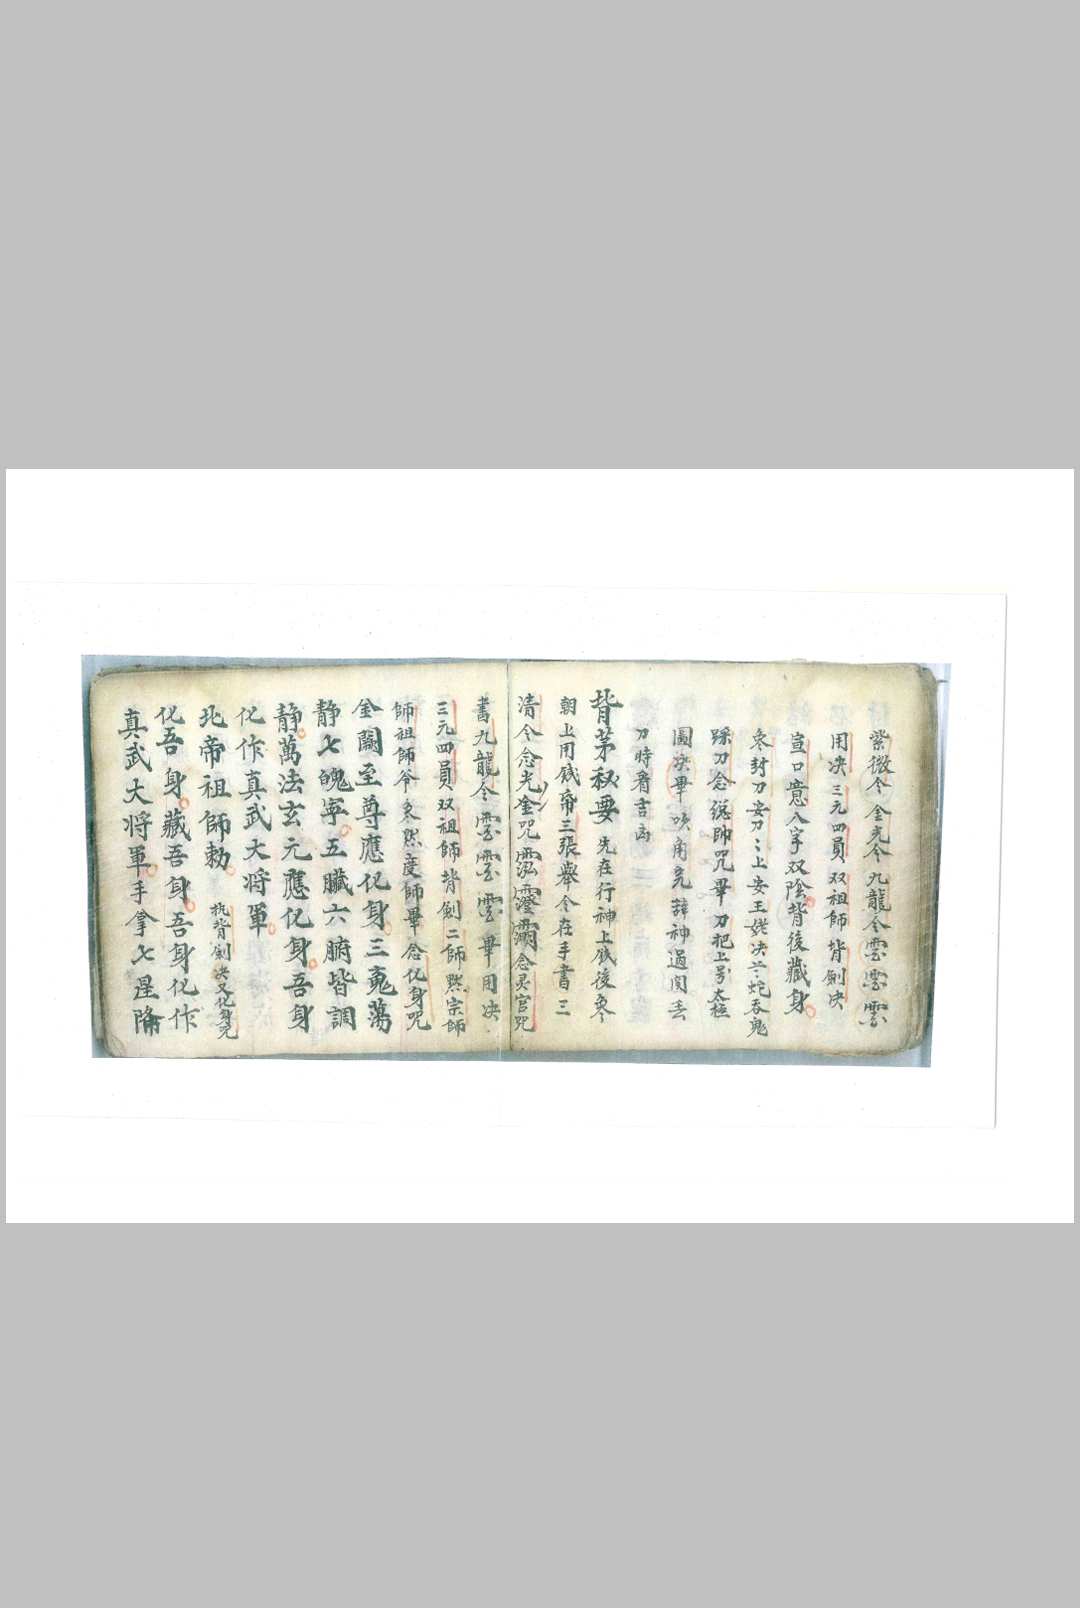 紫微令金光令九龍令雲雲雲
用决三元四員双祖師背劍决
宣口意八字双陰背後藏身
奌封刀安刀〻上安王姥决〻蛇吞鬼
踩刀念 帥咒畢刀把上号太極
圖决畢吹角完辞神過関丢
刀時看吉凶
背茅秘要 先在行神上戲後奌
朝上用錢帋三張舉令在手書三
清令念光金咒 念灵宫咒
書九龍令雲雲雲畢用决
三元四員双祖師背劍二師黙宗師
師祖師爷奌然度師畢念化身咒
金闕至尊應化身三䰟蕩
静七魄寕五臟六腑皆調
静萬法玄元應化身吾身
化作真武大将軍
北帝祖師勅 执背劍决又化身咒
化吾身藏吾身吾身化作
真武大将軍手拿七星降